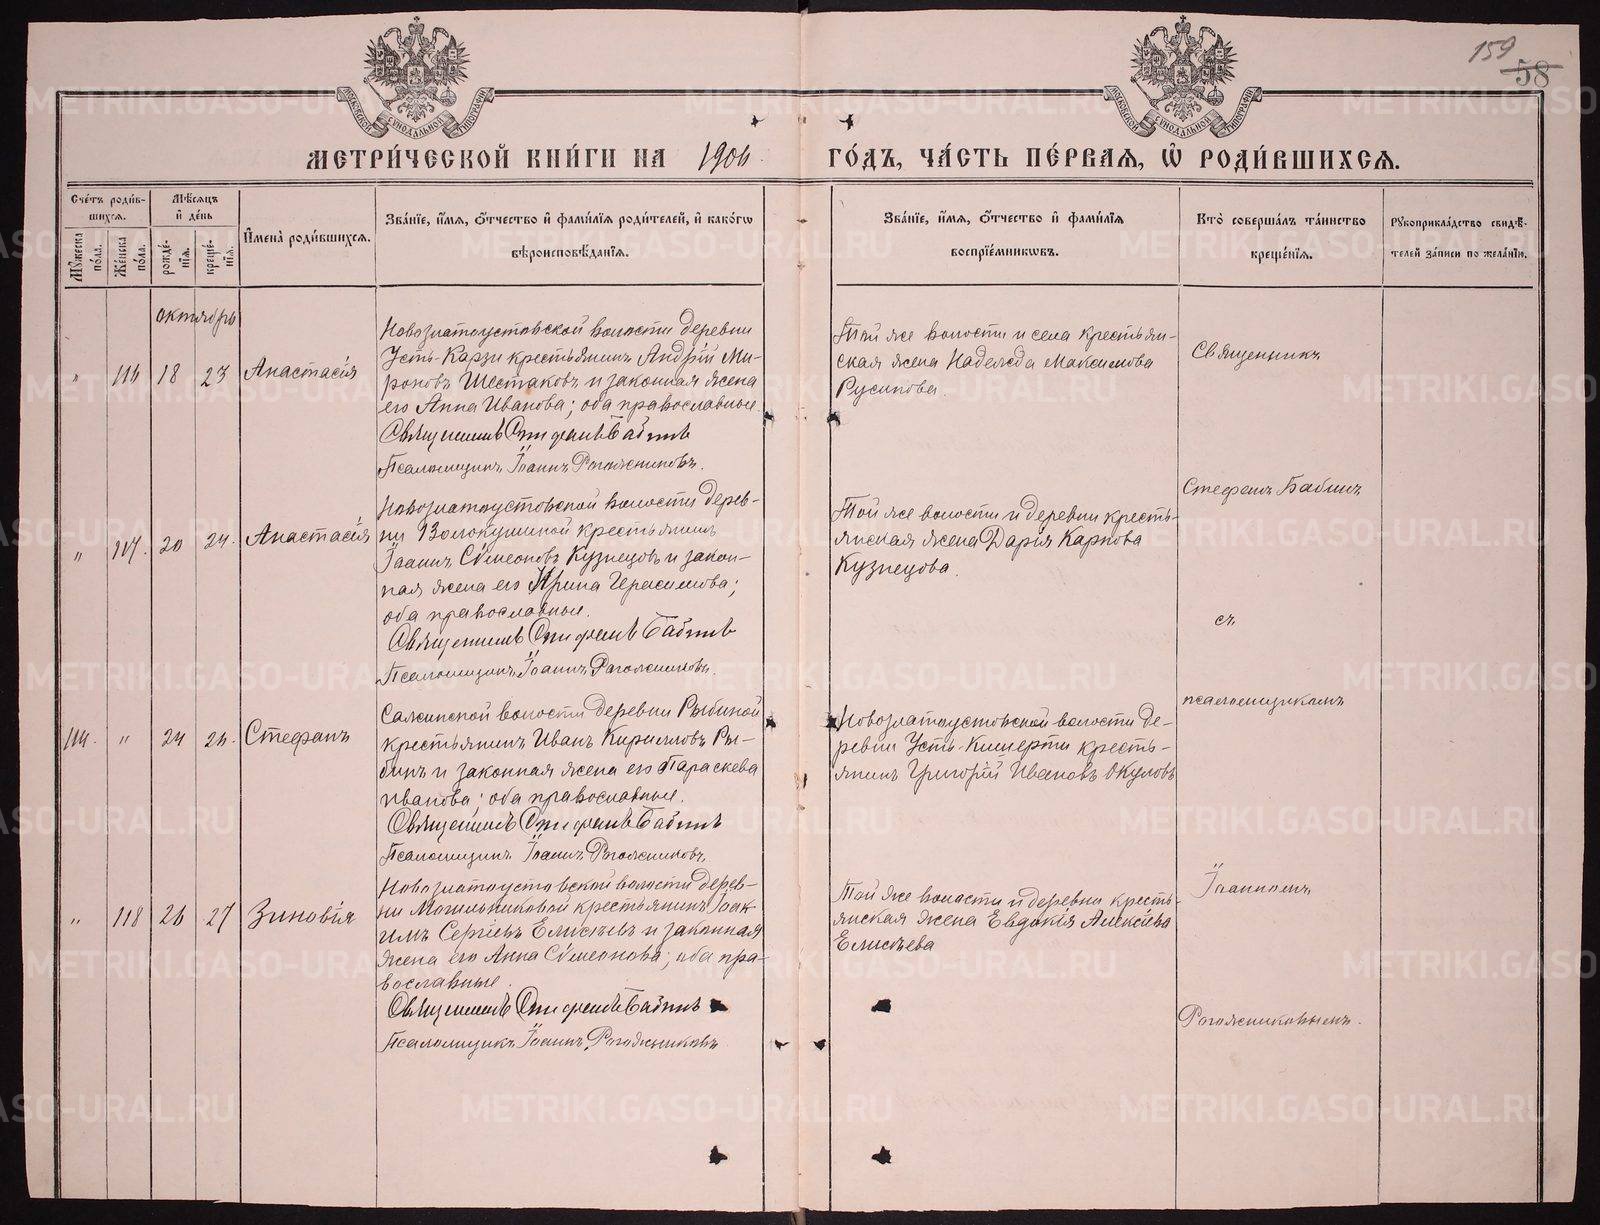 159
58
МОСКОВСКОЙ СѴНОДАЛЬНОЙ ТИПОГРАФІИ
МОСКОВСКОЙ СѴНОДАЛЬНОЙ ТИПОГРАФІИ
МЕТРИ́ЧЕСКОЙ КНИ́ГИ НА 1906 ГО́ДЪ, ЧА́СТЬ ПЕ́РВАЯ, Ѡ РОДИ́ВШИХСЯ.
Сче́тъ роди́в-
шихся.
Мꙋ́жеска по́ла.
Же́нска по́ла.
Мѣ́сяцъ
и҆ де́нь
рожде́-
нїя.
креще́-
нїя.
И҆мена̀ роди́вшихся.
Зва́нїе, и҆́мя, ѻ҆́тчество и҆ фами́лїя роди́телей, и҆ како́гѡ
вѣроисповѣ́данїя.
Зва́нїе, и҆́мя, ѻ҆́тчество и҆ фами́лїя
воспрїе́мникѡвъ.
Кто̀ соверша́лъ та́инство
креще́нїя.
Рꙋкоприкла́дство свидѣ́-
телей за́писи по жела́нїю.
октябрь
" 116 18 23 Анастасія
Новозлатоустовской волости деревни
Усть-Карзи крестьянинъ Андрій Ми-
роновъ Шестаковъ и законная жена
его Анна Иванова; оба православные.
Священникъ Стефанъ Бабинъ
Псаломщикъ Іоаннъ Рогожниковъ.
Той же волости и села крестьян-
ская жена Надежда Максимова
Русинова.
Священникъ
" 117. 20 24. Анастасія
Новозлатоустовской волости дерев-
ни Волокушиной крестьянинъ
Іоаннъ Сѵмеоновъ Кузнецовъ и закон-
ная жена его Ирина Герасимова;
оба православные.
Священникъ Стефанъ Бабинъ
Псаломщикъ Іоаннъ Рогожниковъ.
Той же волости и деревни кресть-
янская жена Дарія Карпова
Кузнецова.
Стефанъ Бабинъ
съ
114. " 24 26. Стефанъ
Сажинской волости деревни Рыбиной
крестьянинъ Иванъ Кирилловъ Ры-
бинъ и законная жена его Параскева
Иванова; оба православные.
Священникъ Стефанъ Бабинъ
Псаломщикъ Іоаннъ Рогожниковъ
Новозлатоустовской волости де-
ревни Усть-Кишерти кресть-
янинъ Григорій Ивановъ Окуловъ
псаломщикомъ
" 118 26 27 Зиновія
Новозлатоустовской волости дерев-
ни Могильниковой крестьянинъ Іоак-
имъ Сергіевъ Елисѣевъ и законная
жена его Анна Сѵмеонова; оба пра-
вославные.
Священникъ Стефанъ Бабинъ
Псаломщикъ Іоаннъ Рогожниковъ
Той же волости и деревни кресть-
янская жена Евдокія Алексіева
Елисѣева
Іоанномъ
Рогожниковымъ.
METRIKI.GASO-URAL.RU